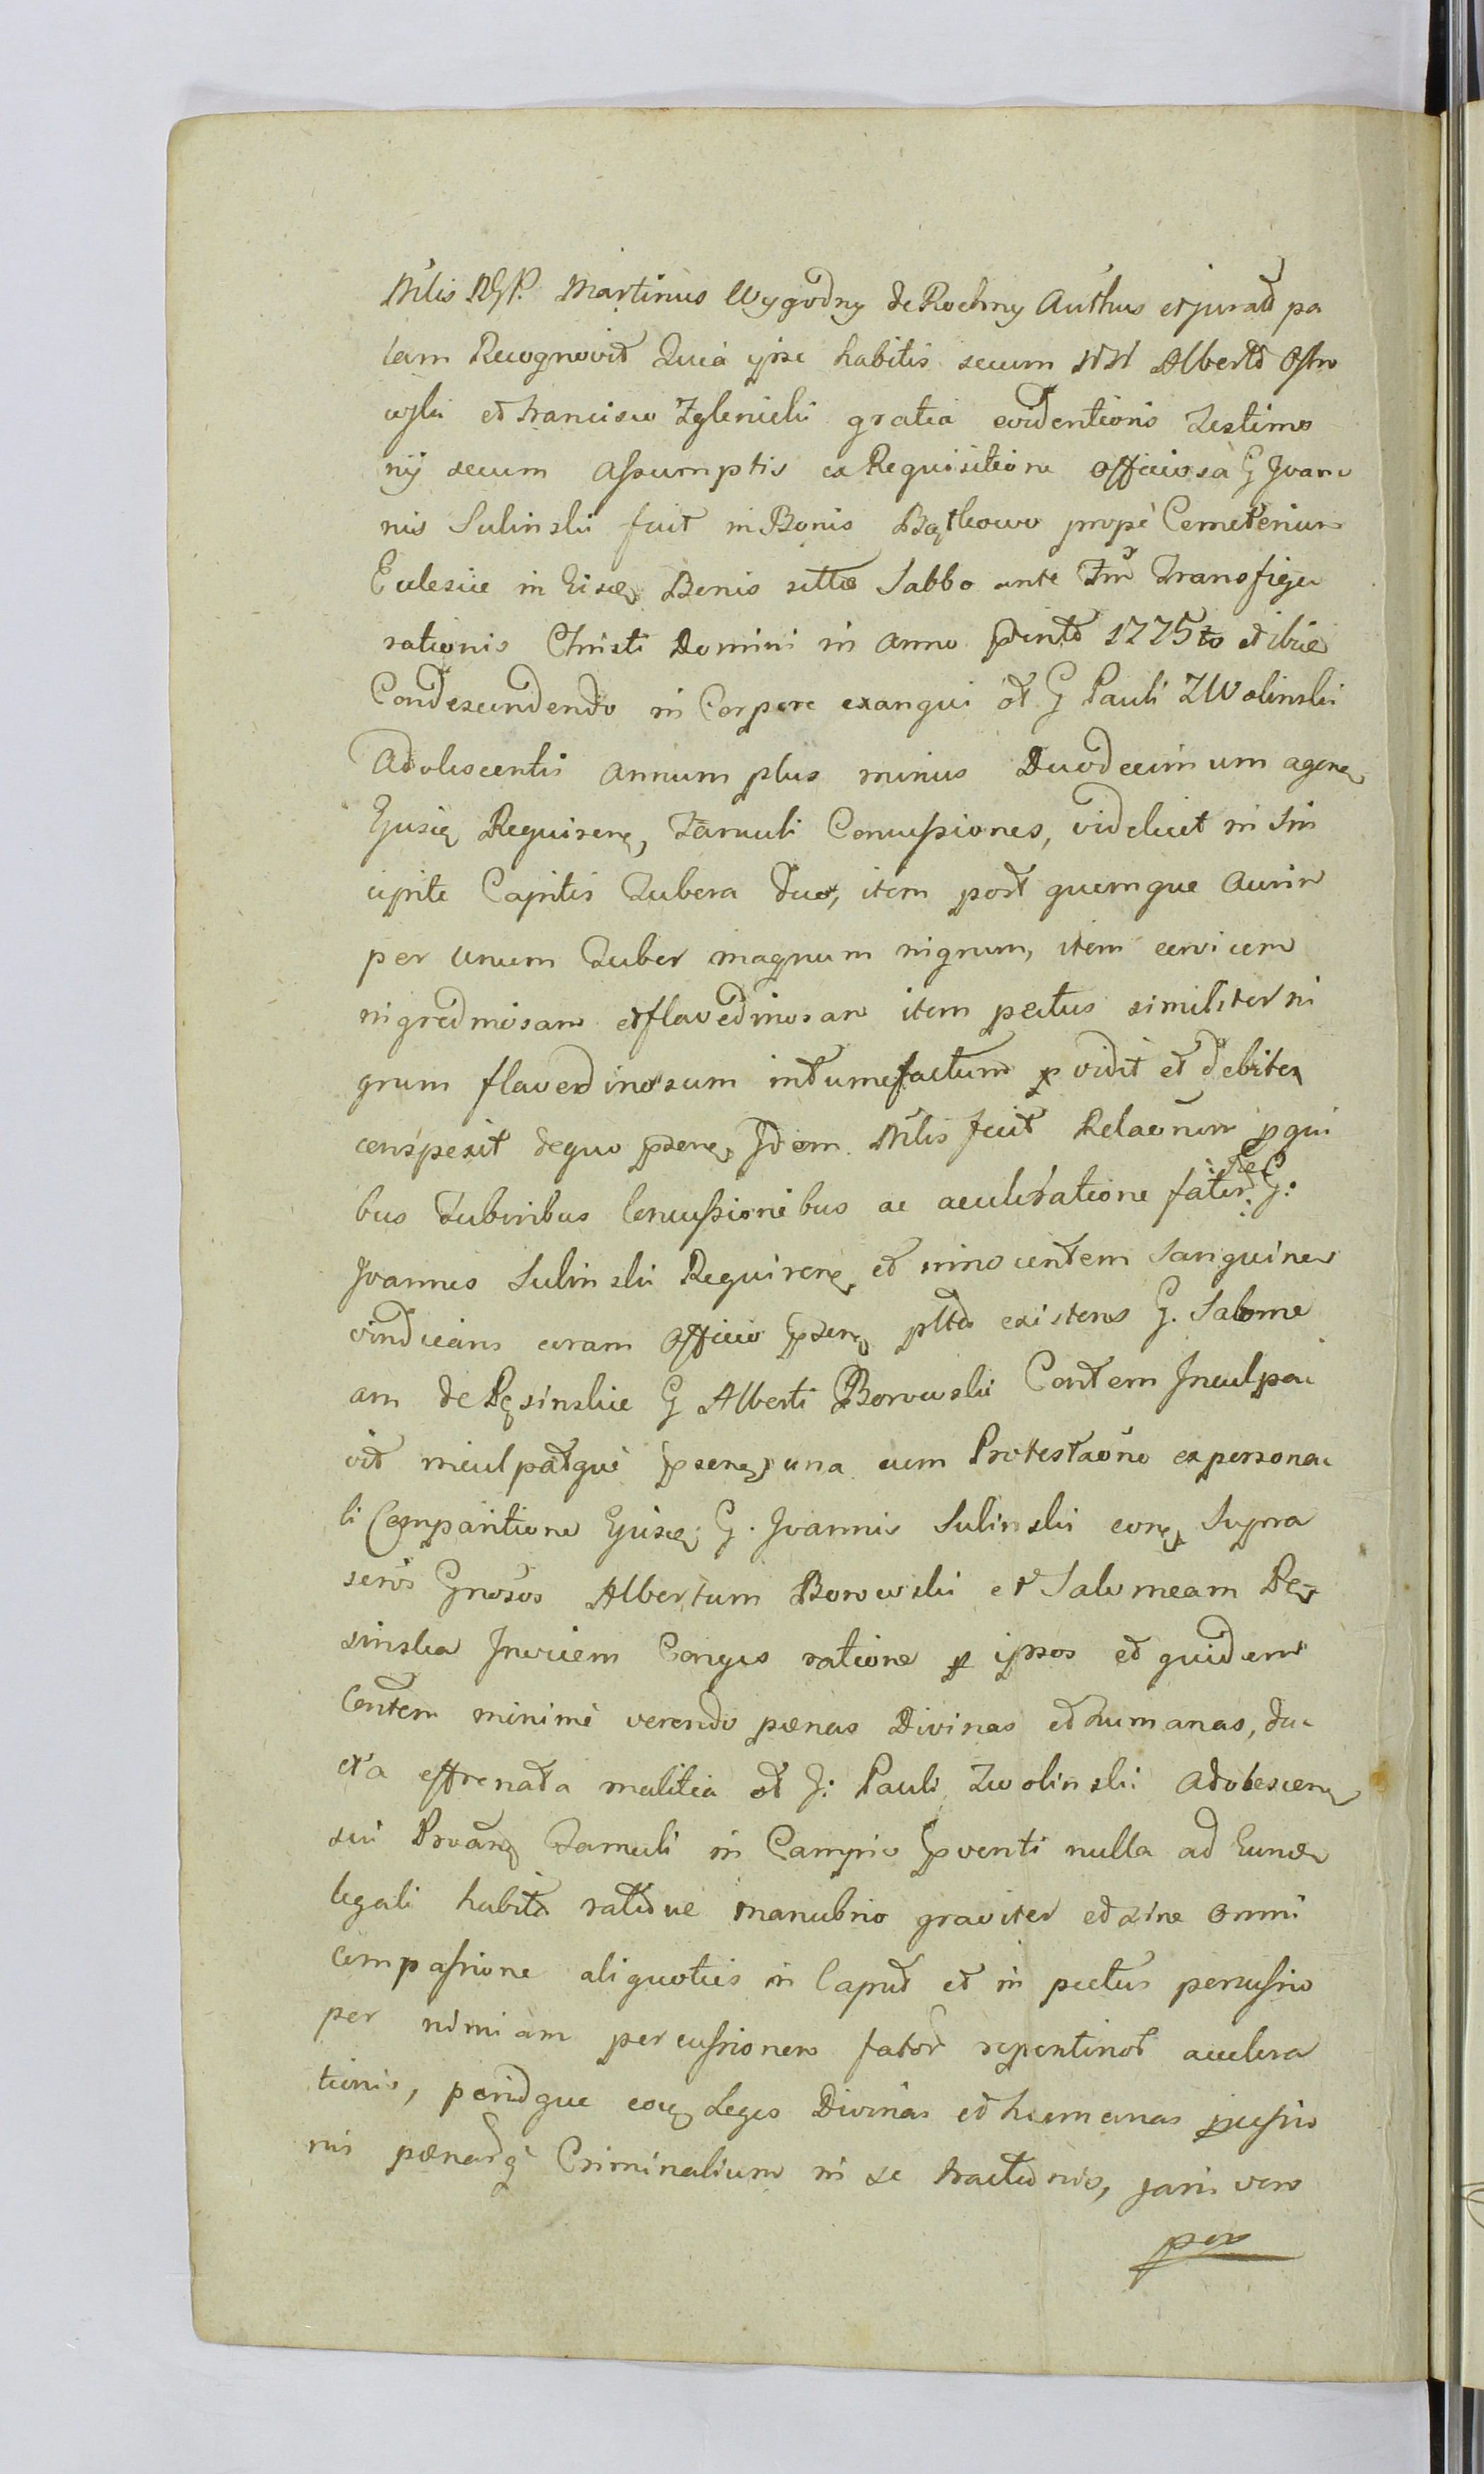 Mtlis RGP. Martinus Wygodny de Rochny Authus et jurad pa
lam Recognovit Quia ipse habitis secum NN Albertd Ostro
wski et Francisco Zglenicki gratia evidentioris Testimo
nij secum Assumptis ex Requisitione officiosa G Joan
nis Sulinski fuit in Bonis Bątkowo propè Cemeterium
Eclesiæ in Eisdę Bonis sittæ Sabbo ante Fm̃ Transfigu
rationis Christi Domini in anno pñti 1775to et ibid
Condescendendo in Corpore exangui ol G Pauli ZWolinski
Adoliscentis annum plus minus Duodecimum agenę
Ejusdę Requirenę, Famuli Concussiones, videlicet in Sin
cipite Capitis Tubera duo, item post quemque Aurim
per unum Tuber magnum nigrum, item cervicem
nigredinosam et flavedinosam item pectus similiter ni
grum flavedinosum intumefactum p vidit et debite
conspexit de quo psenę Idem Mtlis fecit Relaõnem p qui
bus Tuberibus Concussionibus ac acceleratione fator: Id G:
Joannes Sulinski Requirenę et innocentem Sanguinem
vindicans coram Officio psenę pltr existens G. Salome
am de Pęsinskie G Alberti Borowski Contem Inculpa
vit inculpatque psenę una cum Protestaõne ex persona
li Comparitione Ejusdę G. Joannis Sulinski conę Supra
scrõs Gnosos Albertum Borowski et Salomeam Pę
sinska Invicem Conges ratione p ipsos et quidem
Contem minimè verendo pænas Divinas et humanas, du
cta effrenata malitia ol G: Pauli Zwolinski Adolescenę
sui Proãnę Famuli in Campis pventi nulla ad Eundę
legali habita ratione manubrio graviter et sine omni
compassione aliquoties in Caput et in pectus percussio
per nimiam percussionem fator repentinor accelera
tionis, peridque conę Leges Divinas et humanas pcussio
nis pænarq Criminalium in se tractionis, jam vero
per